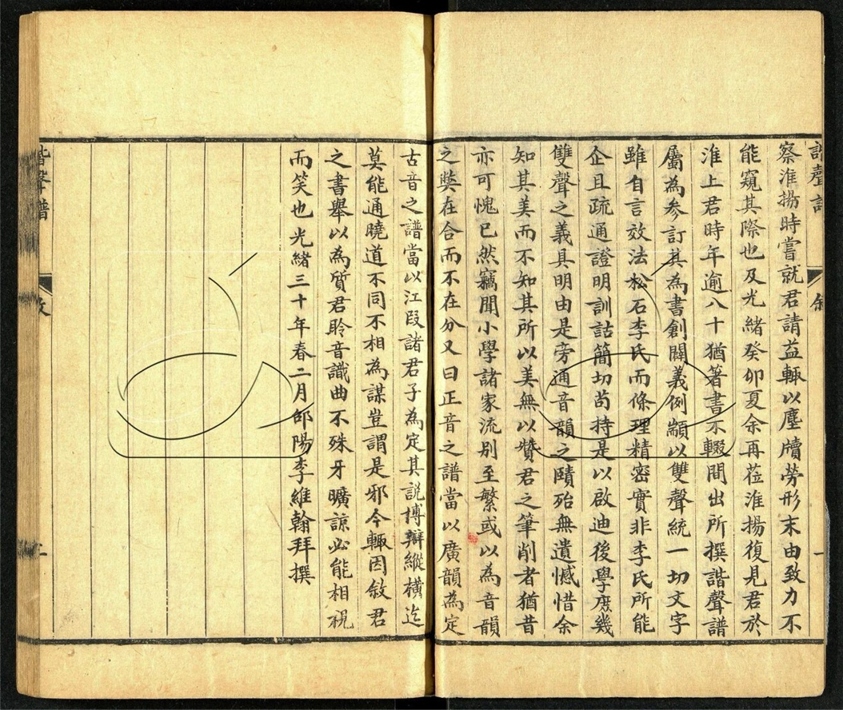 諧聲譜 敘 一
察淮揚時嘗就君請益輒以塵牘勞形末由致力不
能窺其際也及光緒癸卯夏余再莅淮揚復見君於
淮上君時年逾八十猶著書不輟間出所撰諧聲譜
屬為參訂其為書創闢義例顓以雙聲統一切文字
雖自言效法松石李氏而條理精密實非李氏所能
企且疏通證明訓詁簡切苟持是以啟迪後學庶幾
雙聲之義具明由是旁通音韻之賾殆無遺憾惜余
知其美而不知其所以美無以贊君之筆削者猶昔
亦可愧已然竊聞小學諸家流別至繁或以為音韻
之獘在合而不在分又曰正音之譜當以廣韻為定
古音之譜當以江段諸君子為定其說博辯縱橫迄
莫能通曉道不同不相為謀豈謂是邪今輒因敘君
之書舉以為質君聆音識曲不殊牙曠諒必能相視
而笑也光緒三十年春二月郃陽李維翰拜撰
諧聲譜